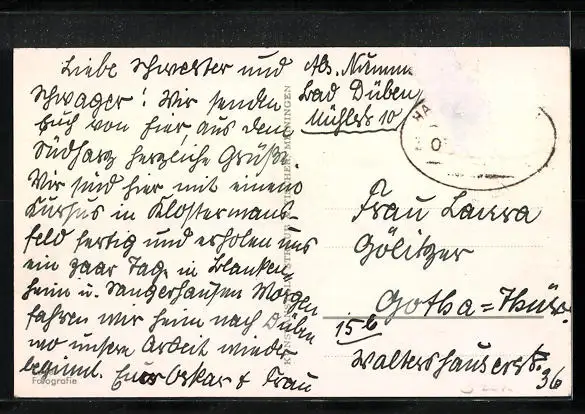 Liebe Schwester und
Schwager! Wir senden
Euch von hier aus dem
Südharz herzliche Grüße.
Wir sind hier mit einem
Kursus in Klostermans-
feld fertig und erholen uns
ein paar Tage in Blanken
heim u. Sangerhausen Morgen
fahren wir heim nach Düben
wo unsere Arbeit wieder
beginnt. Euer Oskar & Frau
Fotografie
Abs.
Bad Düben
Mühlstr 10
Frau Laura
Gölitzer
Gotha=Thür.
15b
Waltershäuserstr.
36